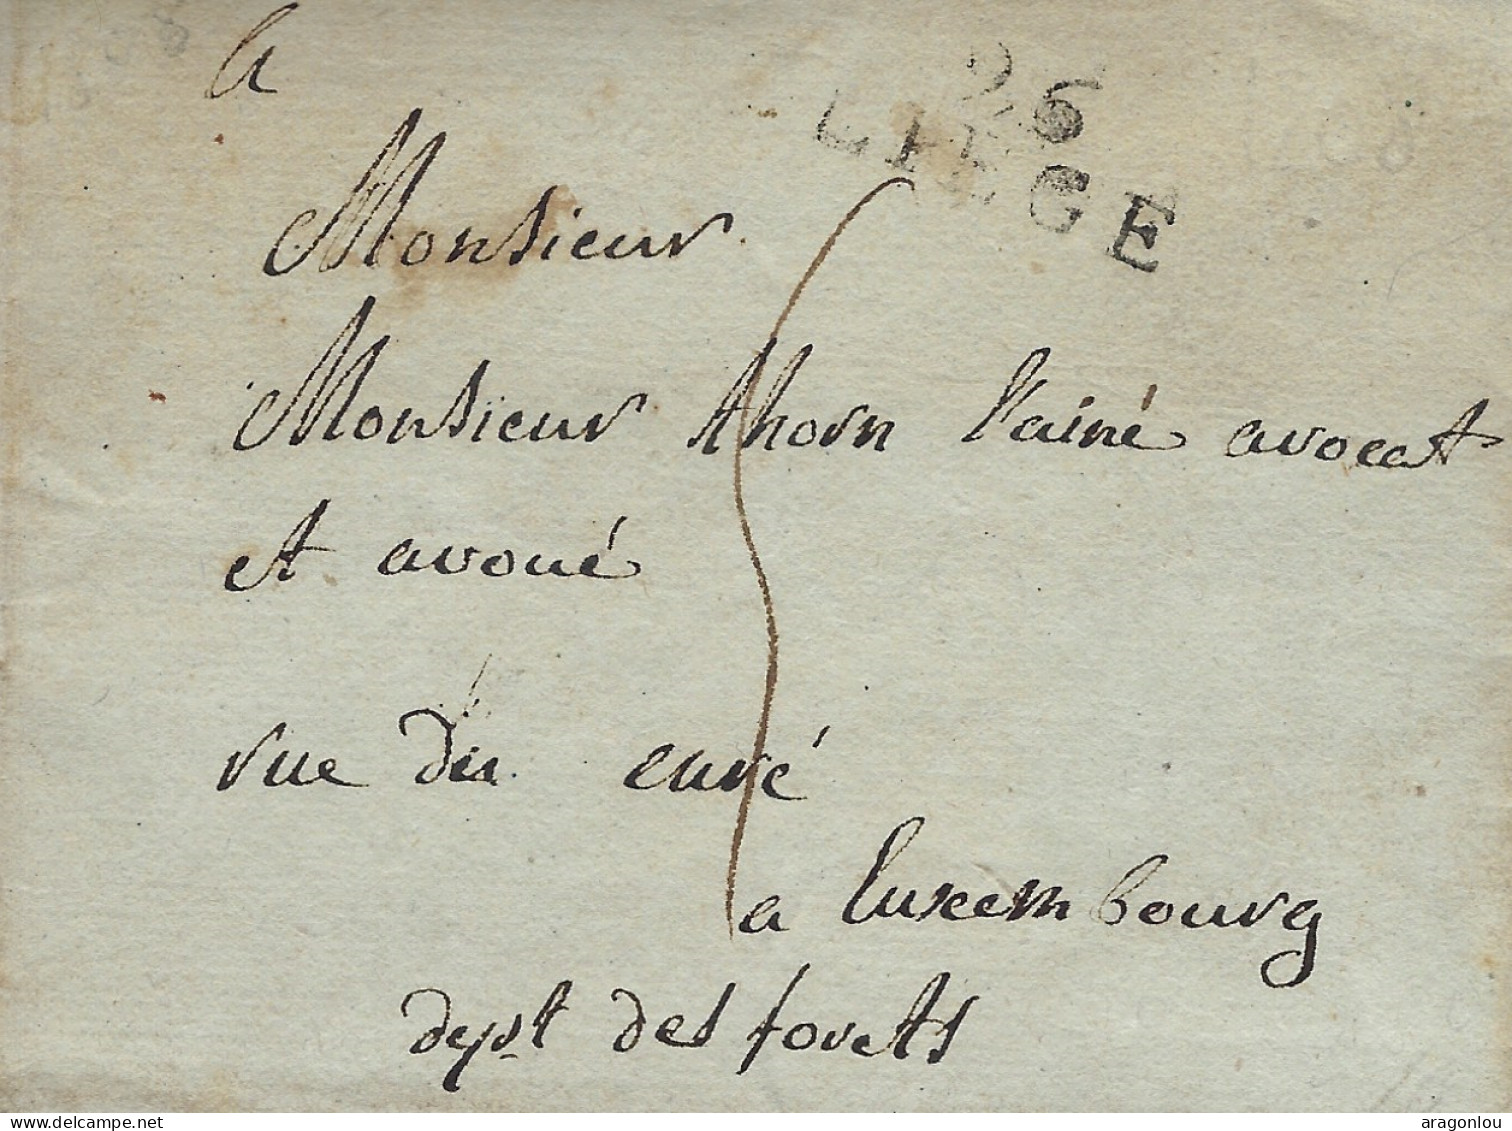 a
96
LIEGE
Monsieur
Monsieur thorn l'ainé avocat
et avoué
rue du curé
a luxembourg
dept des forets
aragonlou